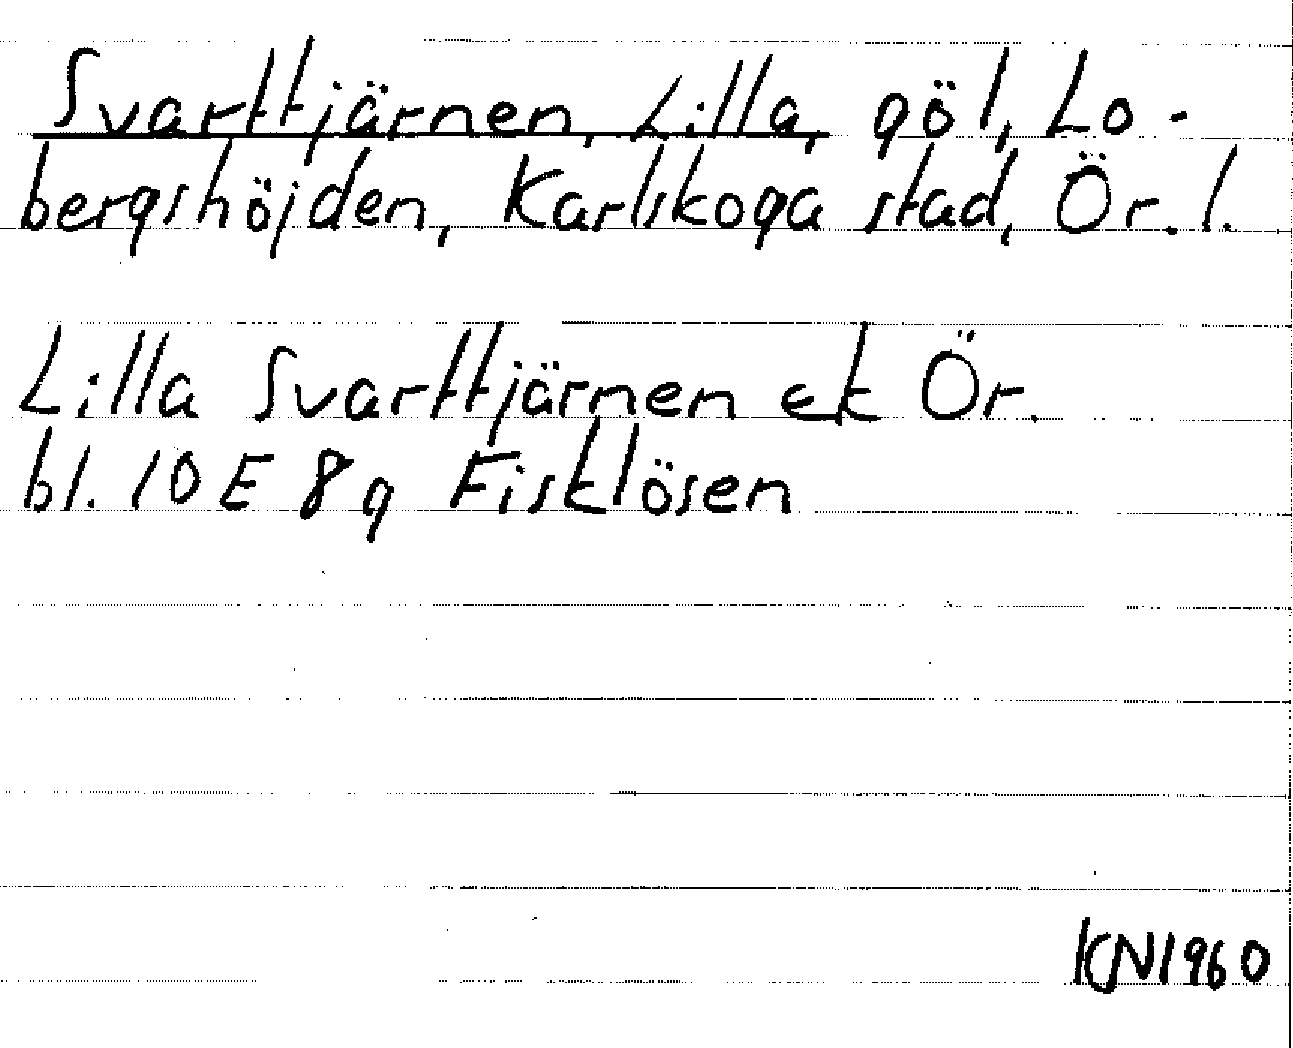 Svarttjärnen, Lilla, göl, Lo-
bergshöjden, Karlskoga stad, Ör. l.
Lilla Svarttjärnen ek Ör.
bl. 10 E 8 g Fisklösen
KN1960